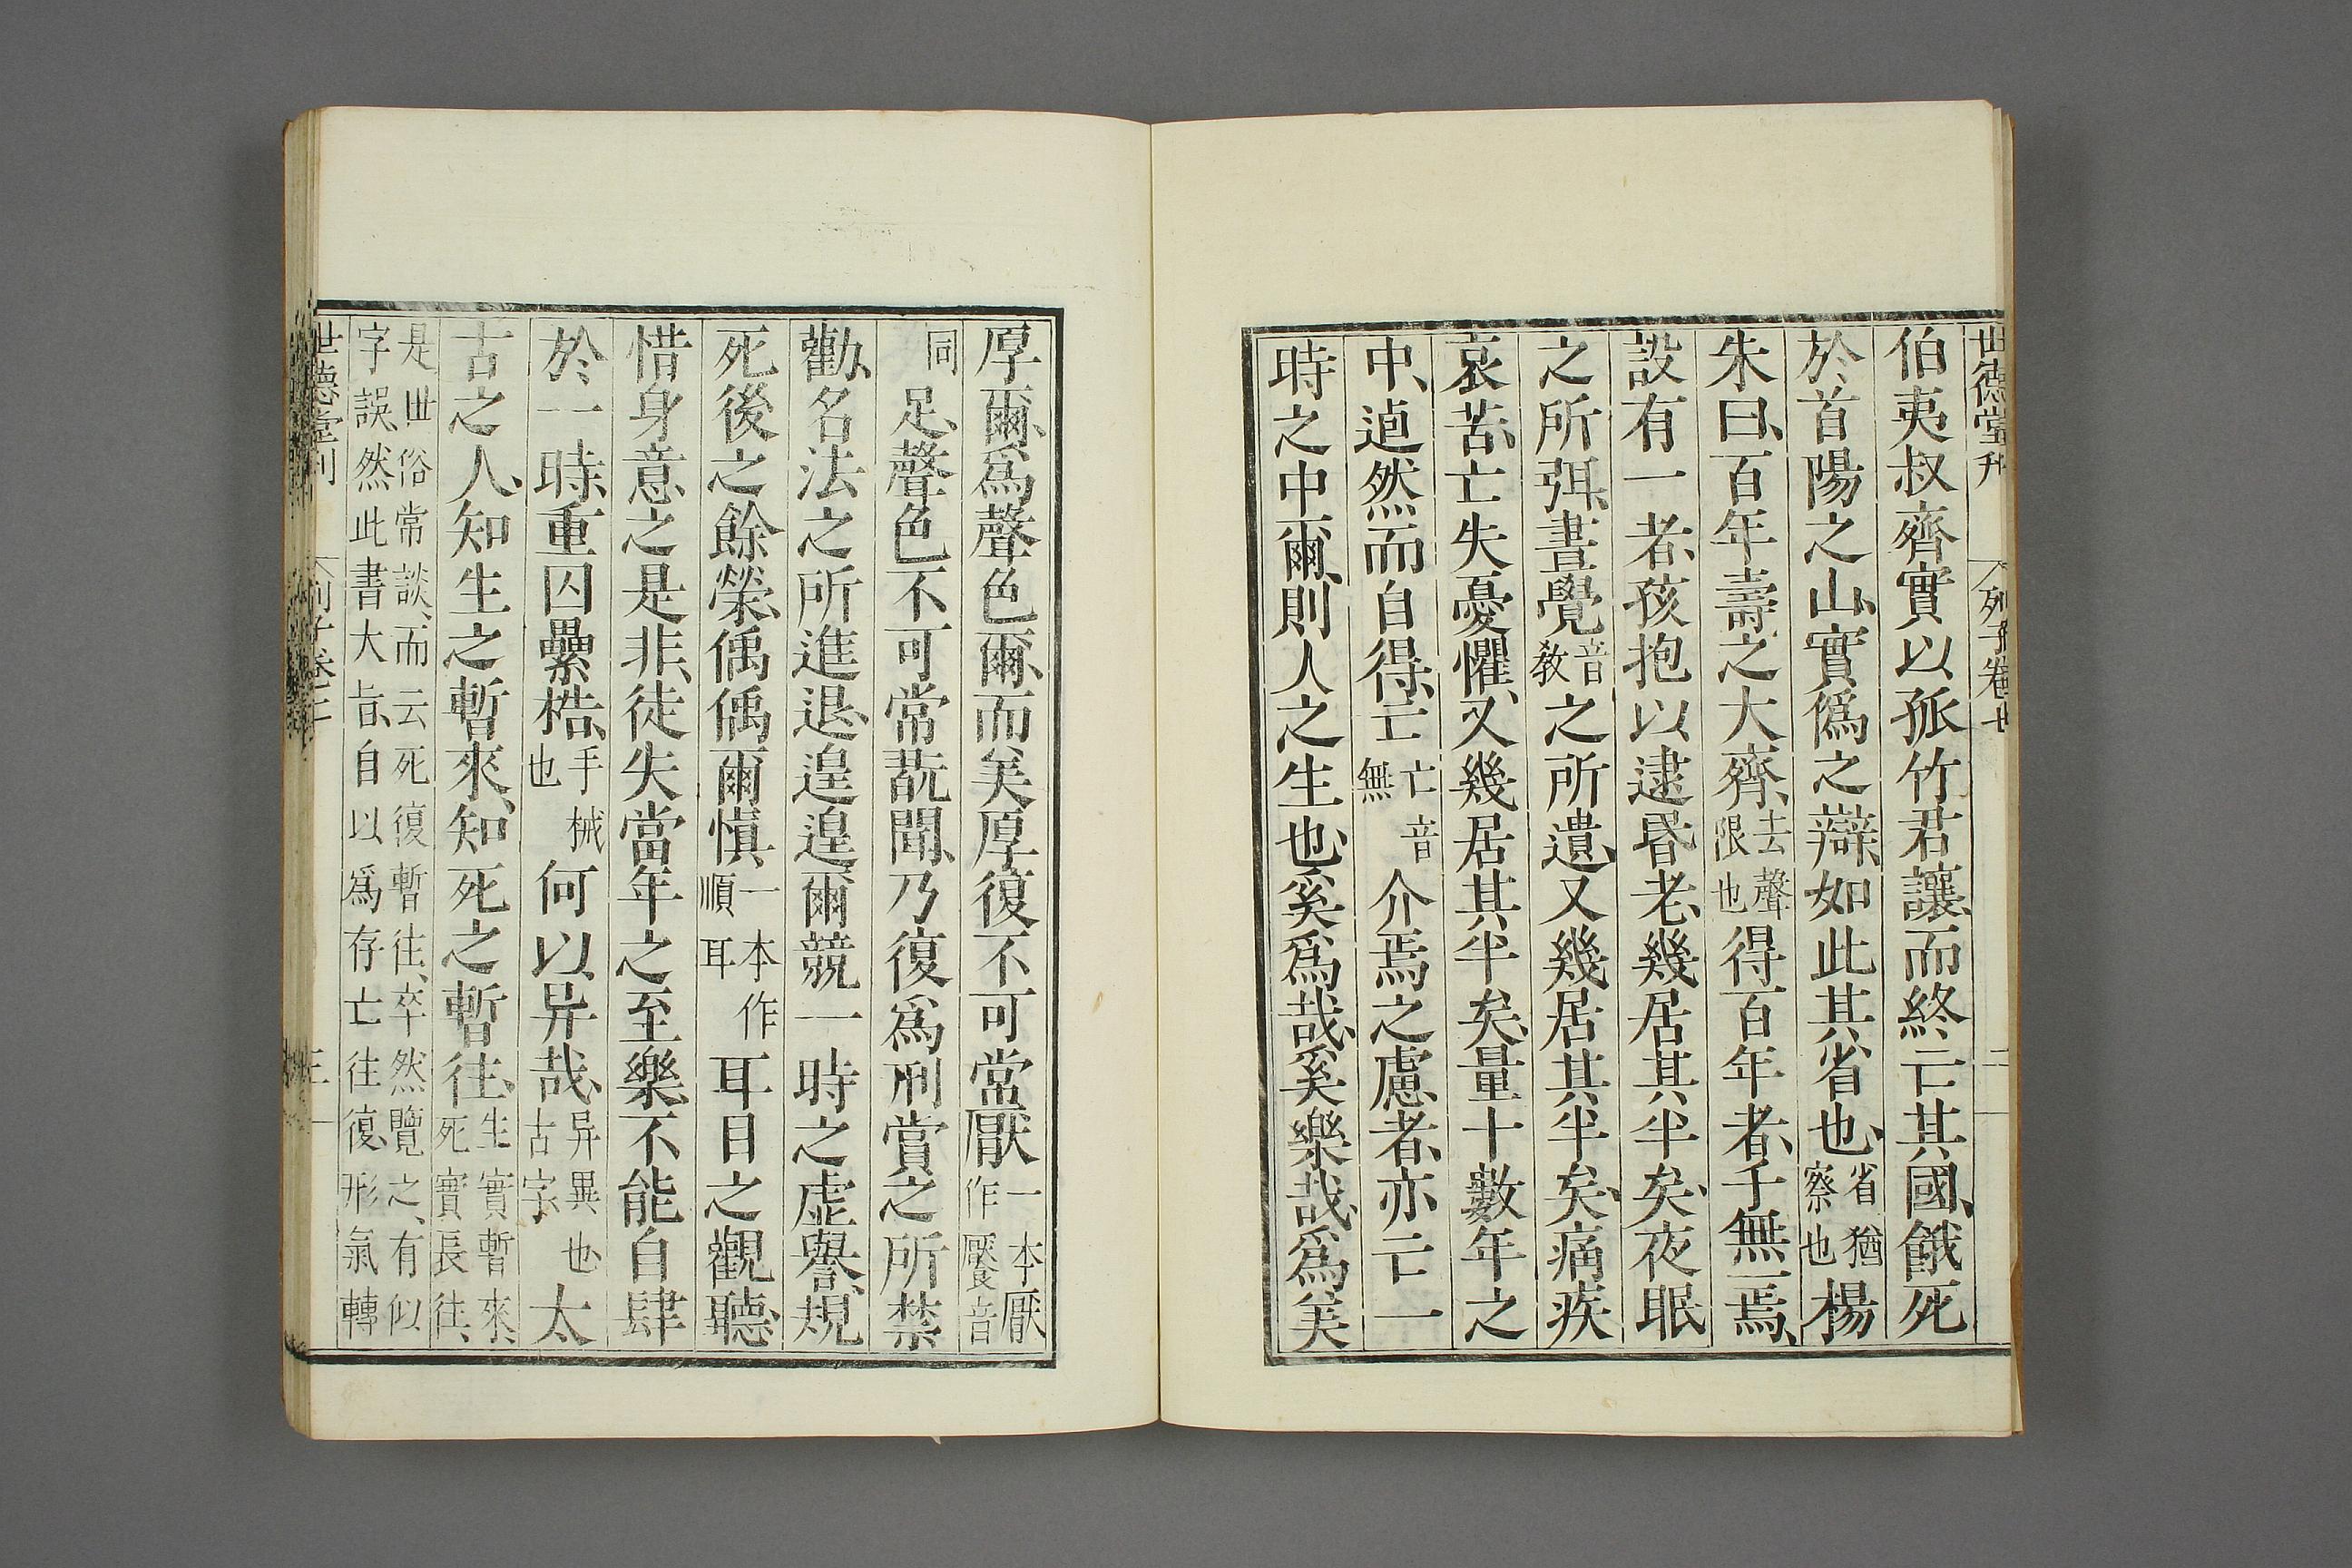 世德堂刊 列子卷七 二
伯夷叔齊實以孤竹君讓、而終亡其國、餓死
於首陽之山、實僞之辯、如此其省也、省猶察也楊
朱曰、百年壽之大齊、去聲限也得百年者、千無一焉、
設有一者、孩抱以逮昬老、幾居其半矣、夜眠
之所弭、晝覺音教之所遺、又幾居其半矣、痛疾
哀苦、亡失憂懼、又幾居其半矣、量十數年之
中、逌然而自得、亡亡音無介焉之慮者、亦亡一
時之中爾、則人之生也、奚爲哉、奚樂哉、爲美
厚爾、爲聲色爾、而美厚復不可常厭一本厭作饜音
同足、聲色不可常翫聞、乃復爲刑賞之所禁
勸、名法之所進退、遑遑爾競一時之虛譽、規
死後之餘榮、偊偊爾慎一本作順耳耳目之觀聽、
惜身意之是非、徒失當年之至樂、不能自肆
於一時、重囚纍梏、手械也何以异哉、异異也古字太
古之人、知生之暫來、知死之暫往、生實暫來、死實長往、
是世俗常談、而云死復暫往、卒然覽之、有似
字誤、然此書大旨、自以爲存亡往復、形氣轉
世德堂刊 列子卷 三